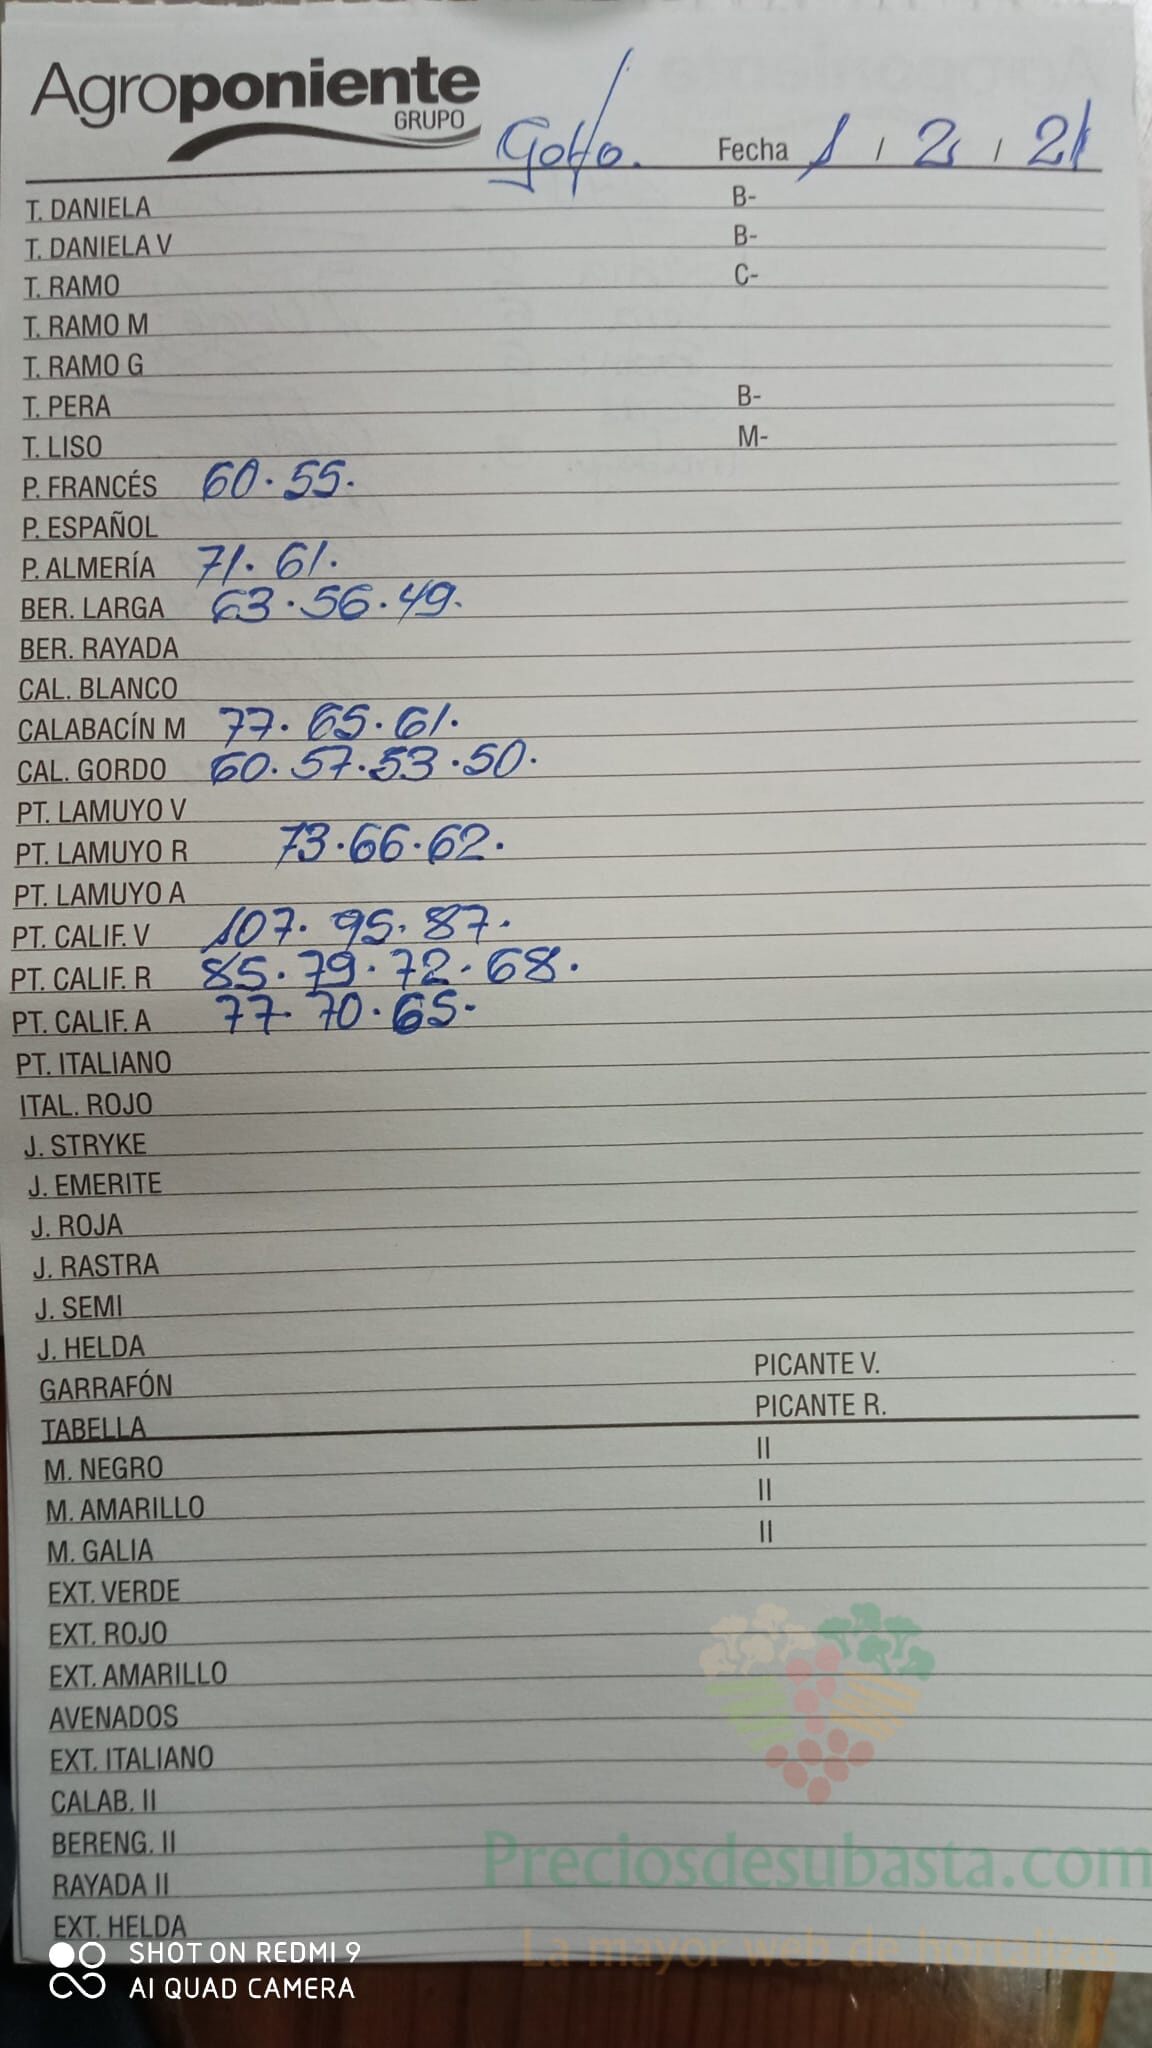 Agroponiente
GRUPO
Golfo. Fecha 1 / 2 / 21
T. DANIELA B-
T. DANIELA V B-
T. RAMO C-
T. RAMO M
T. RAMO G
T. PERA B-
T. LISO M-
P. FRANCÉS 60.55.
P. ESPAÑOL
P. ALMERÍA 71. 61.
BER. LARGA 63.56.49.
BER. RAYADA
CAL. BLANCO
CALABACÍN M 77. 65.61.
CAL. GORDO 60.57.53.50.
PT. LAMUYO V
PT. LAMUYO R 73.66.62.
PT. LAMUYO A
PT. CALIF. V 107. 95. 87.
PT. CALIF. R 85.79.72.68.
PT. CALIF. A 77. 70.65.
PT. ITALIANO
ITAL. ROJO
J. STRYKE
J. EMERITE
J. ROJA
J. RASTRA
J. SEMI
J. HELDA
GARRAFÓN PICANTE V.
TABELLA PICANTE R.
M. NEGRO II
M. AMARILLO II
M. GALIA II
EXT. VERDE
EXT. ROJO
EXT. AMARILLO
AVENADOS
EXT. ITALIANO
CALAB. II
BERENG. II
RAYADA II
EXT. HELDA
Preciosdesubasta.com
La mayor web de hortalizas
SHOT ON REDMI 9
AI QUAD CAMERA